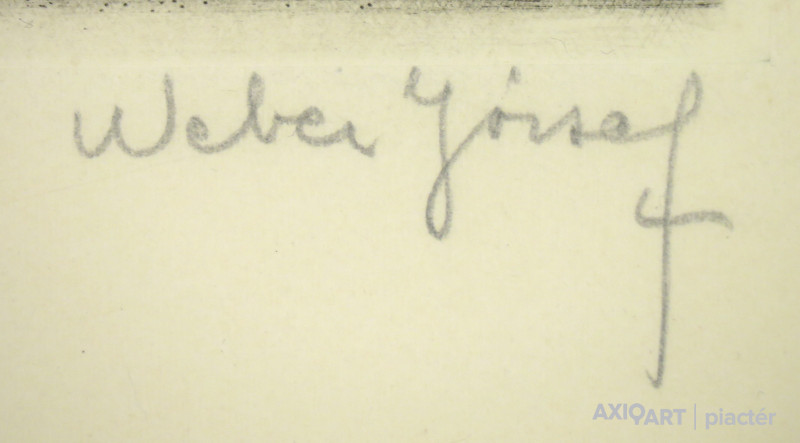 Weber József
AXIOART | piactér